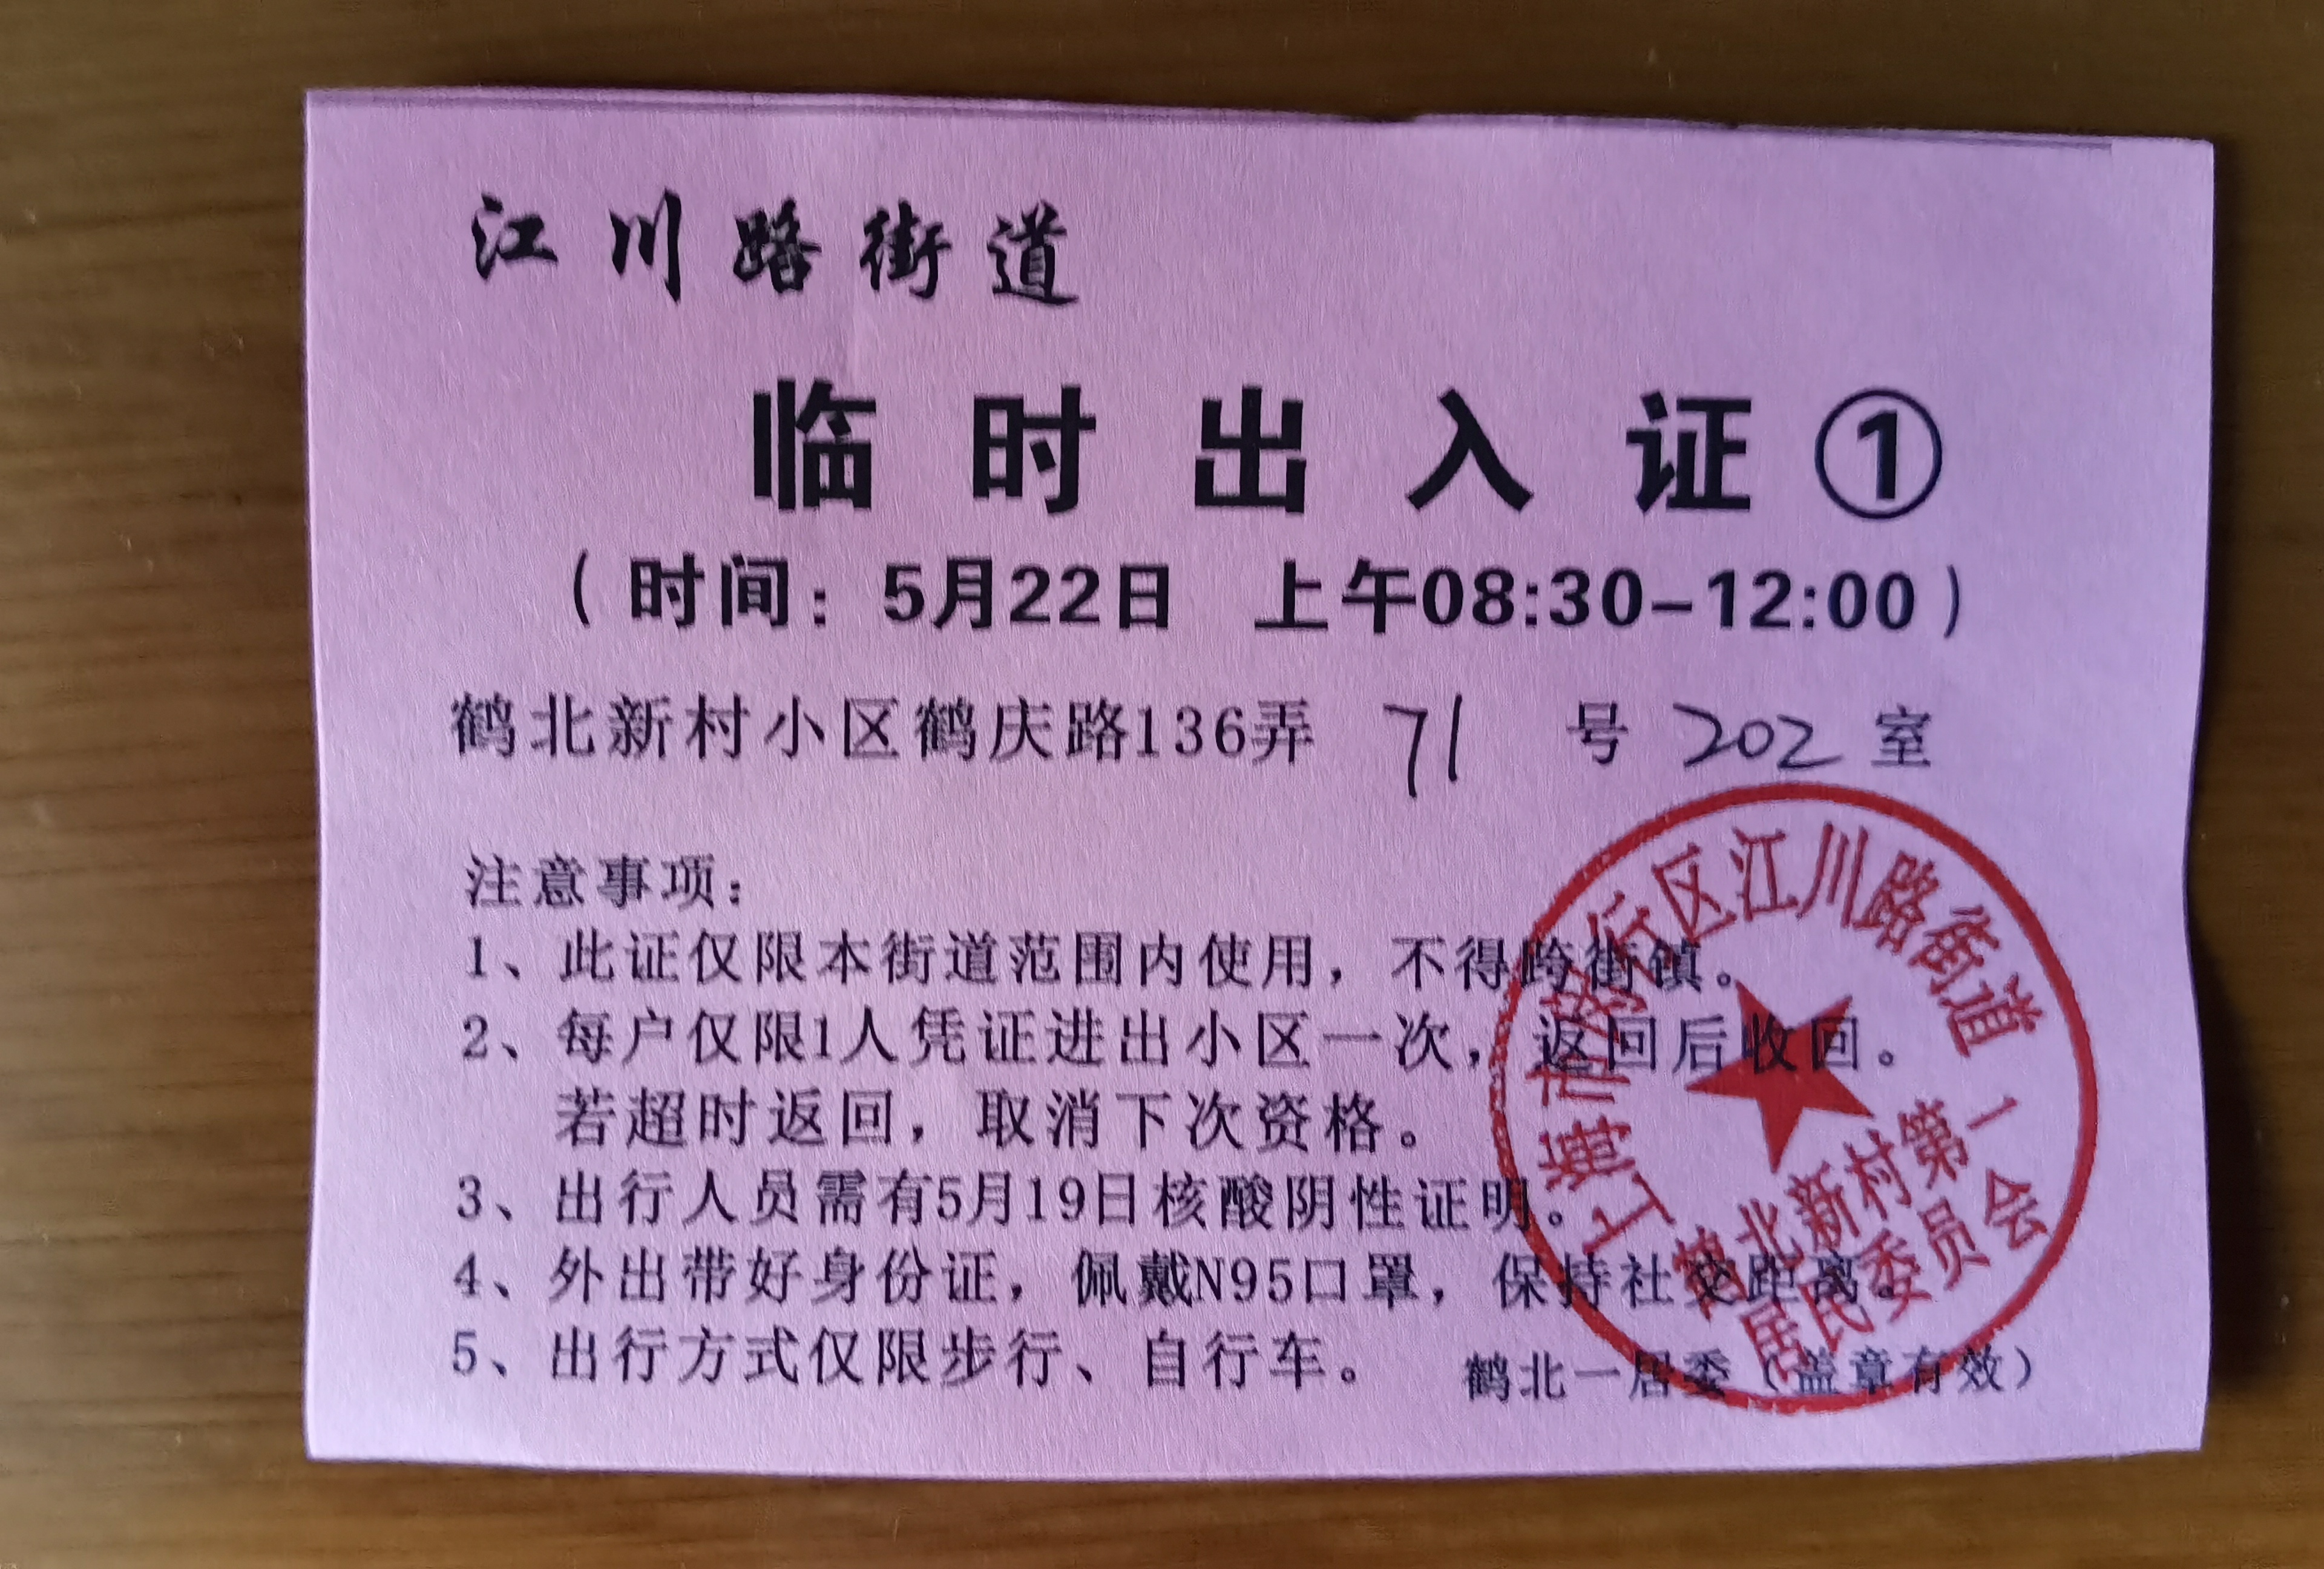 江川路街道
临时出入证①
（时间：5月22日 上午08:30-12:00）
鹤北新村小区鹤庆路136弄 71 号 202 室
注意事项：
1、此证仅限本街道范围内使用，不得跨街镇。
2、每户仅限1人凭证进出小区一次，返回后收回。
若超时返回，取消下次资格。
3、出行人员需有5月19日核酸阴性证明。
4、外出带好身份证，佩戴N95口罩，保持社交距离。
5、出行方式仅限步行、自行车。
鹤北一居委（盖章有效）
上海市闵行区江川路街道
鹤北新村第一
居民委员会